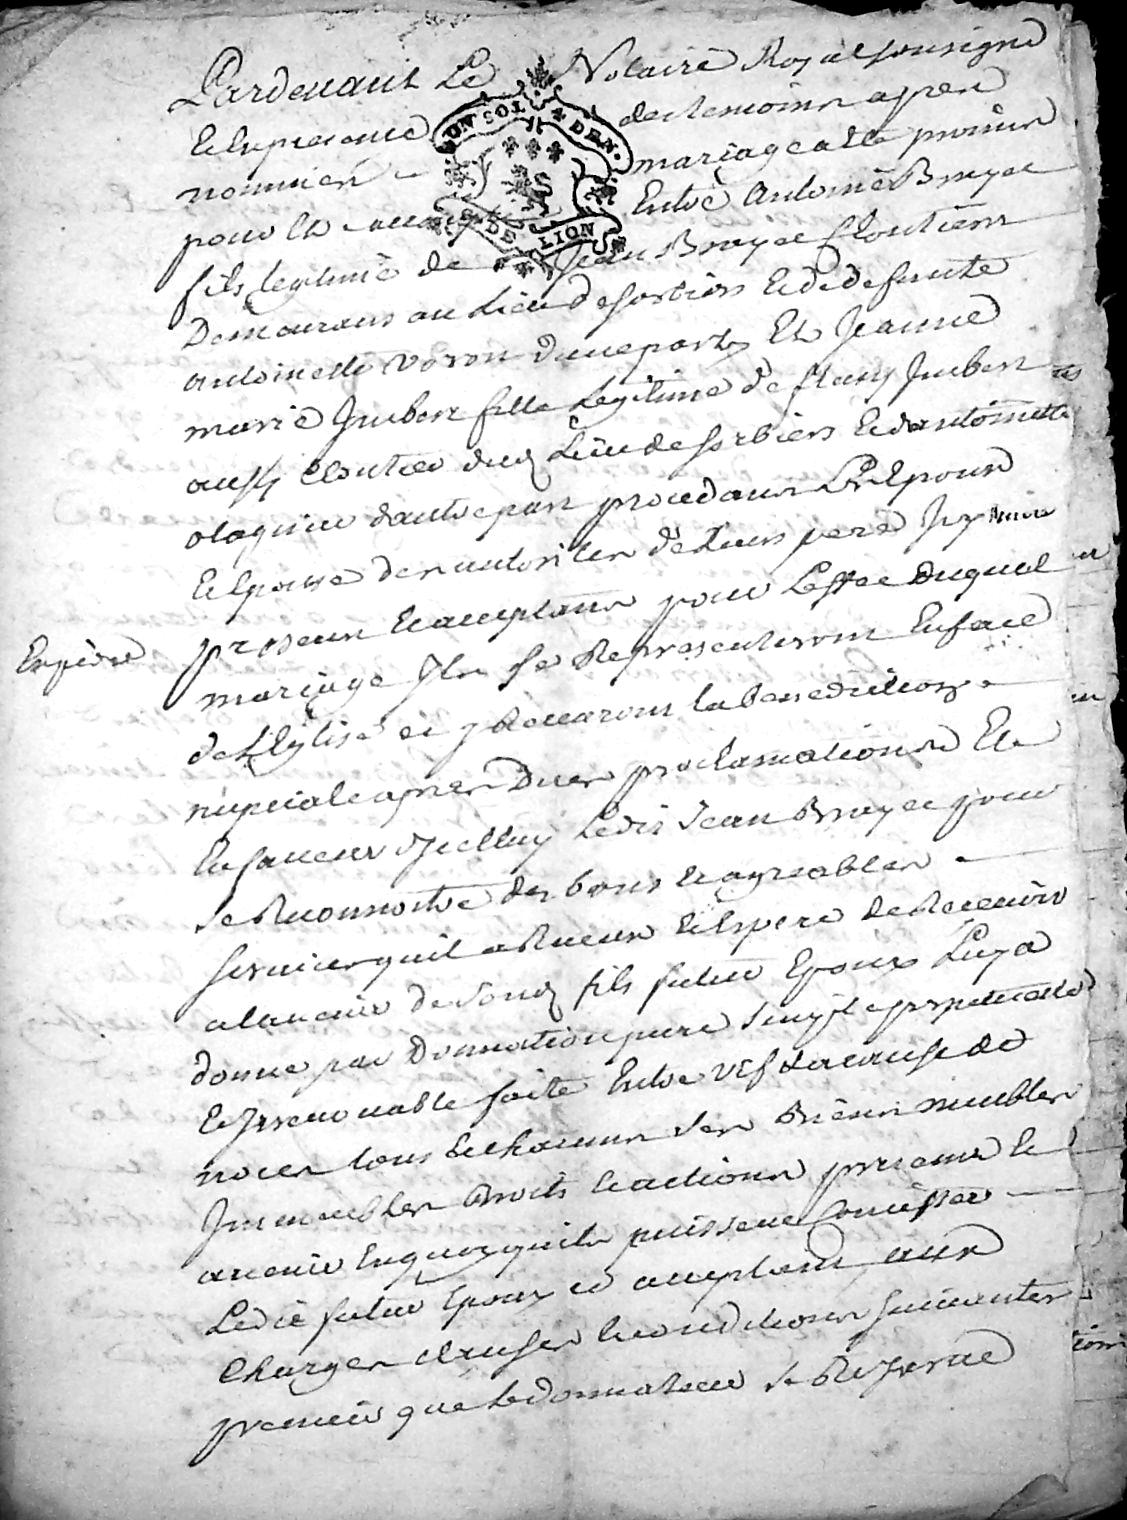 Pardevant Le Notaire Royal soussigné
Et En presence des temoins apres
nommés mariage a été promis
UN SOL 4 DEN.
G. DE LION
pour Et Entre Antoine Bruyer
fils legitime de Jean Bruyer Cloutier
Demeurant au Lieu de Sorbiers Et de defunte
antoinette voron d'une part, Et Jeanne
marie Imbert fille Legitime de fleury Imbert
aussy Cloutier dud Lieu de Sorbiers Et d'antoinette
d'autre part procedants Les Epoux
Et Epouse des autorites de Leurs pere Icy
presents Et acceptants pour L'effet duquel
Expedié
mariage Ils se Representeront En face
de L'Eglise et y Recevront la benediction
nuptiale apres dues proclamations Et
En faveur d'Icelluy Ledit Jean Bruyer pour
se Reconnoitre des bons Et agreables
services qu'il a Receus Et Espere de Recevoir
a l'avenir de Sond fils futur Epoux Luy a
donne par Donnation pure simple perpetuelle
Et Irrevocable faite Entre vif a cause de
noces tous Et chacuns ses Biens meubles
Immeubles droits Et actions presents Et
avenir En quoy qu'ils puissent Consister
Ledit futur Epoux ce acceptant aux
Charges Clauses Et conditions suivantes
premier que Le donnateur se Reserve